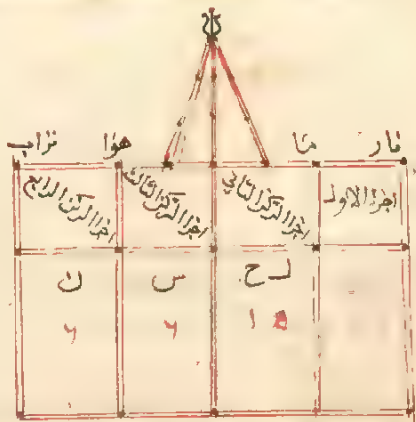 نار ما هوا تراب
اجزا الاول اجزا الركن الثاني اجزا الركن الثالث اجزا الركن الرابع
لح س ن
١٥ ٦ ٦